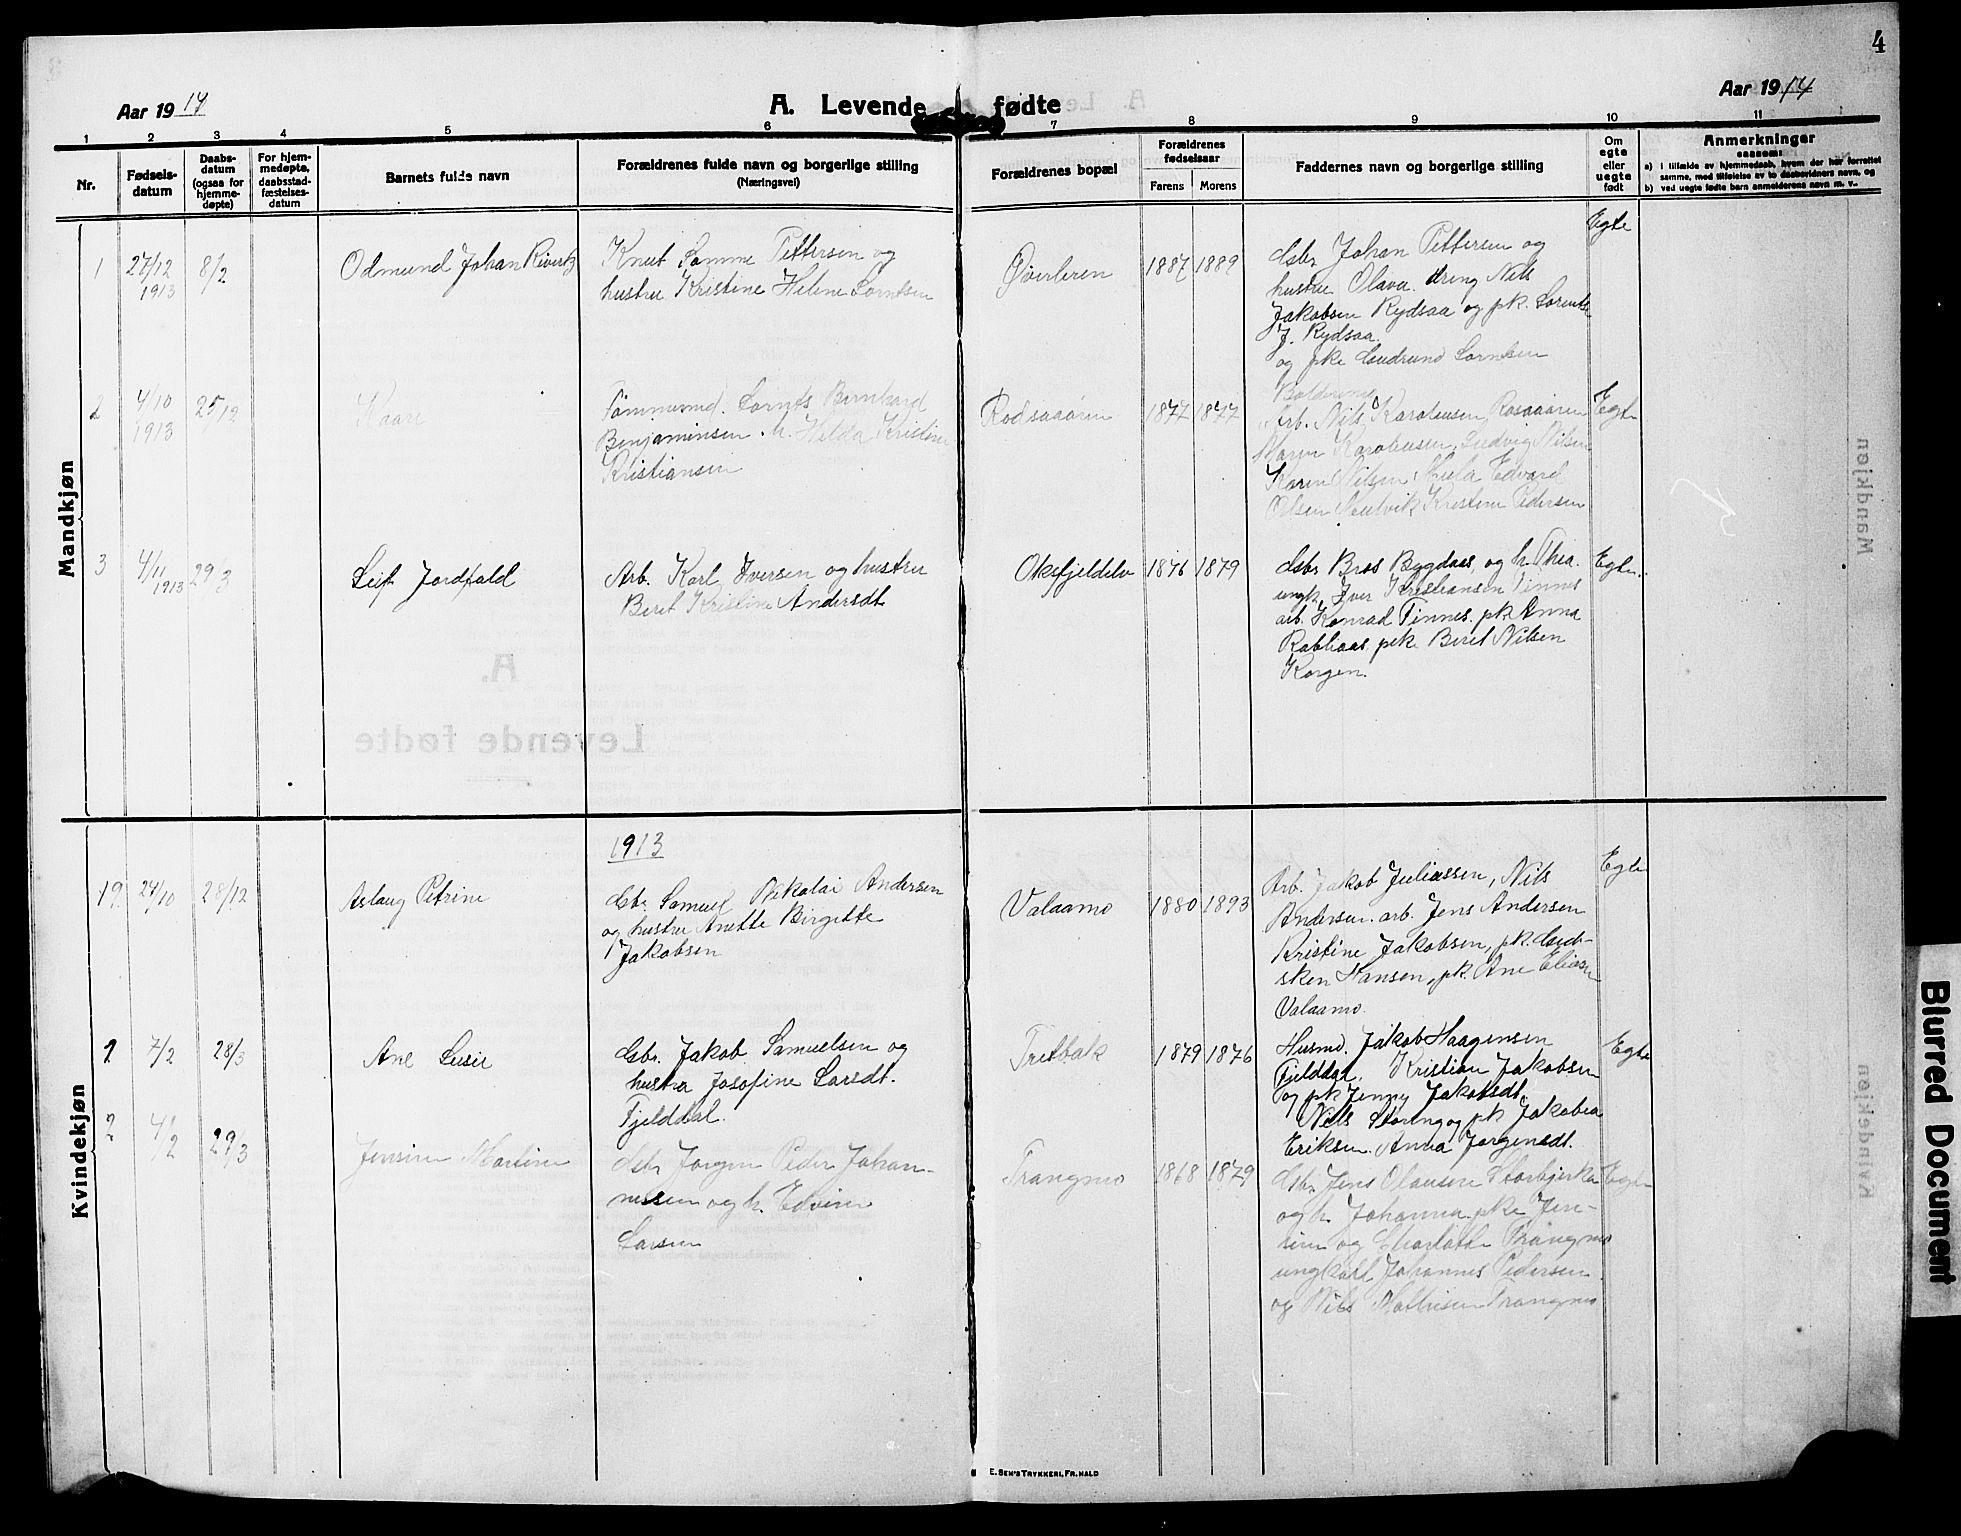 4
Aar 1914
A. Levende fødte
Aar 1914
1 2 3 4 5 6 7 8 9 10 11
Nr.
Fødselsdatum
Daabsdatum (ogsaa for hjemmedøpte)
For hjemmedøpte, daabsstadfæstelsesdatum
Barnets fulde navn
Forældrenes fulde navn og borgerlige stilling
(Næringsvei)
Forældrenes bopæl
Forældrenes fødselsaar
Farens Morens
Faddernes navn og borgerlige stilling
Om egte eller uegte født
Anmerkninger
saasom:
a) i tilfælde av hjemmedaab, hvem der har forrettet
samme, med tilføielse av to daabsvidners navn, og
b) ved uegte fødte barn anmelderens navn m. v.
Mandkjøn
1 27/12 1913 8/2
Odmund Johan Rivertz
Knut Samme Pettersen og
hustru Kristine Helene Lorntsen
Øverleren
1887 1889
Gbr. Johan Pettersen og
hustru Olava. dreng Nils
Jakobsen Rydsaa og pk. Lorentse
J. Rydsaa.
og pke Gudrund Lorntsen
Egte
2 4/10 1913 25/12
Kaare
Tømmermd. Lornts Bernhard
Benjaminsen . h. Hilda Kristine
Kristiansen
Rodsaaøren
1877 1877
Arb. Nils Karoliussen
Karoliussen, Ludvig Nilsen
Karen Nilsen, Edvard
Olsen Kristine Pedersen
Egte
3 4/11 1913 29/3
Leif Jordfald
Arb. Karl Iversen og hustru
Beret Kristine Andersdt
Oksfjeldelv
1876 1879
Gbr. Bros Bygdaas og h. Thea.
ungk. Iver Kristiansen Finnes
arb. Konrad Finnes. pk. Anna
Rabliaas pike Beret Nilsen
Korgen.
Egte.
Kvindekjøn
1913
19. 24/10 28/12
Aslaug Petrine
Gbr. Samuel Nikolai Andersen
og hustru Anette Birgitte
Jakobsen
Valaamo
1880 1893
Arb. Jakob Juliussen, Nils
Andersen. arb. Jens Andersen
Kristine Jakobsen, pk.
Hansen, pk. Ane Eliasen
Valaamo.
Egte
1 7/2 28/3
Ane Lusie
Gbr. Jakob Samuelsen og
hustru Josofine Larsdt.
Fjelddal.
Tretbak
1879 1876
Husmd. Jakob Haagensen
Fjelddal. Kristian Jakobsen
og pk Jenny Jakobsdt.
Nils Storeng og pk Jakobea
Eriksen. Anna Jørgensdt.
Egte
2 4/2 29/3
Jensine Martine
Gbr. Jørgen Peder Johan-
nessen og h. Edvine
Larsen
Trangmo
1868 1879
Gbr. Jens Olausen Storbjerka
og h. Johanna. pke Jen-
sine og Charlotte Trangmo
ungkarl Johannes Pedersen
og Nils Mathisen Trangmo
Egte
E. Sem's Trykkeri, Fr.hald
Blurred Document